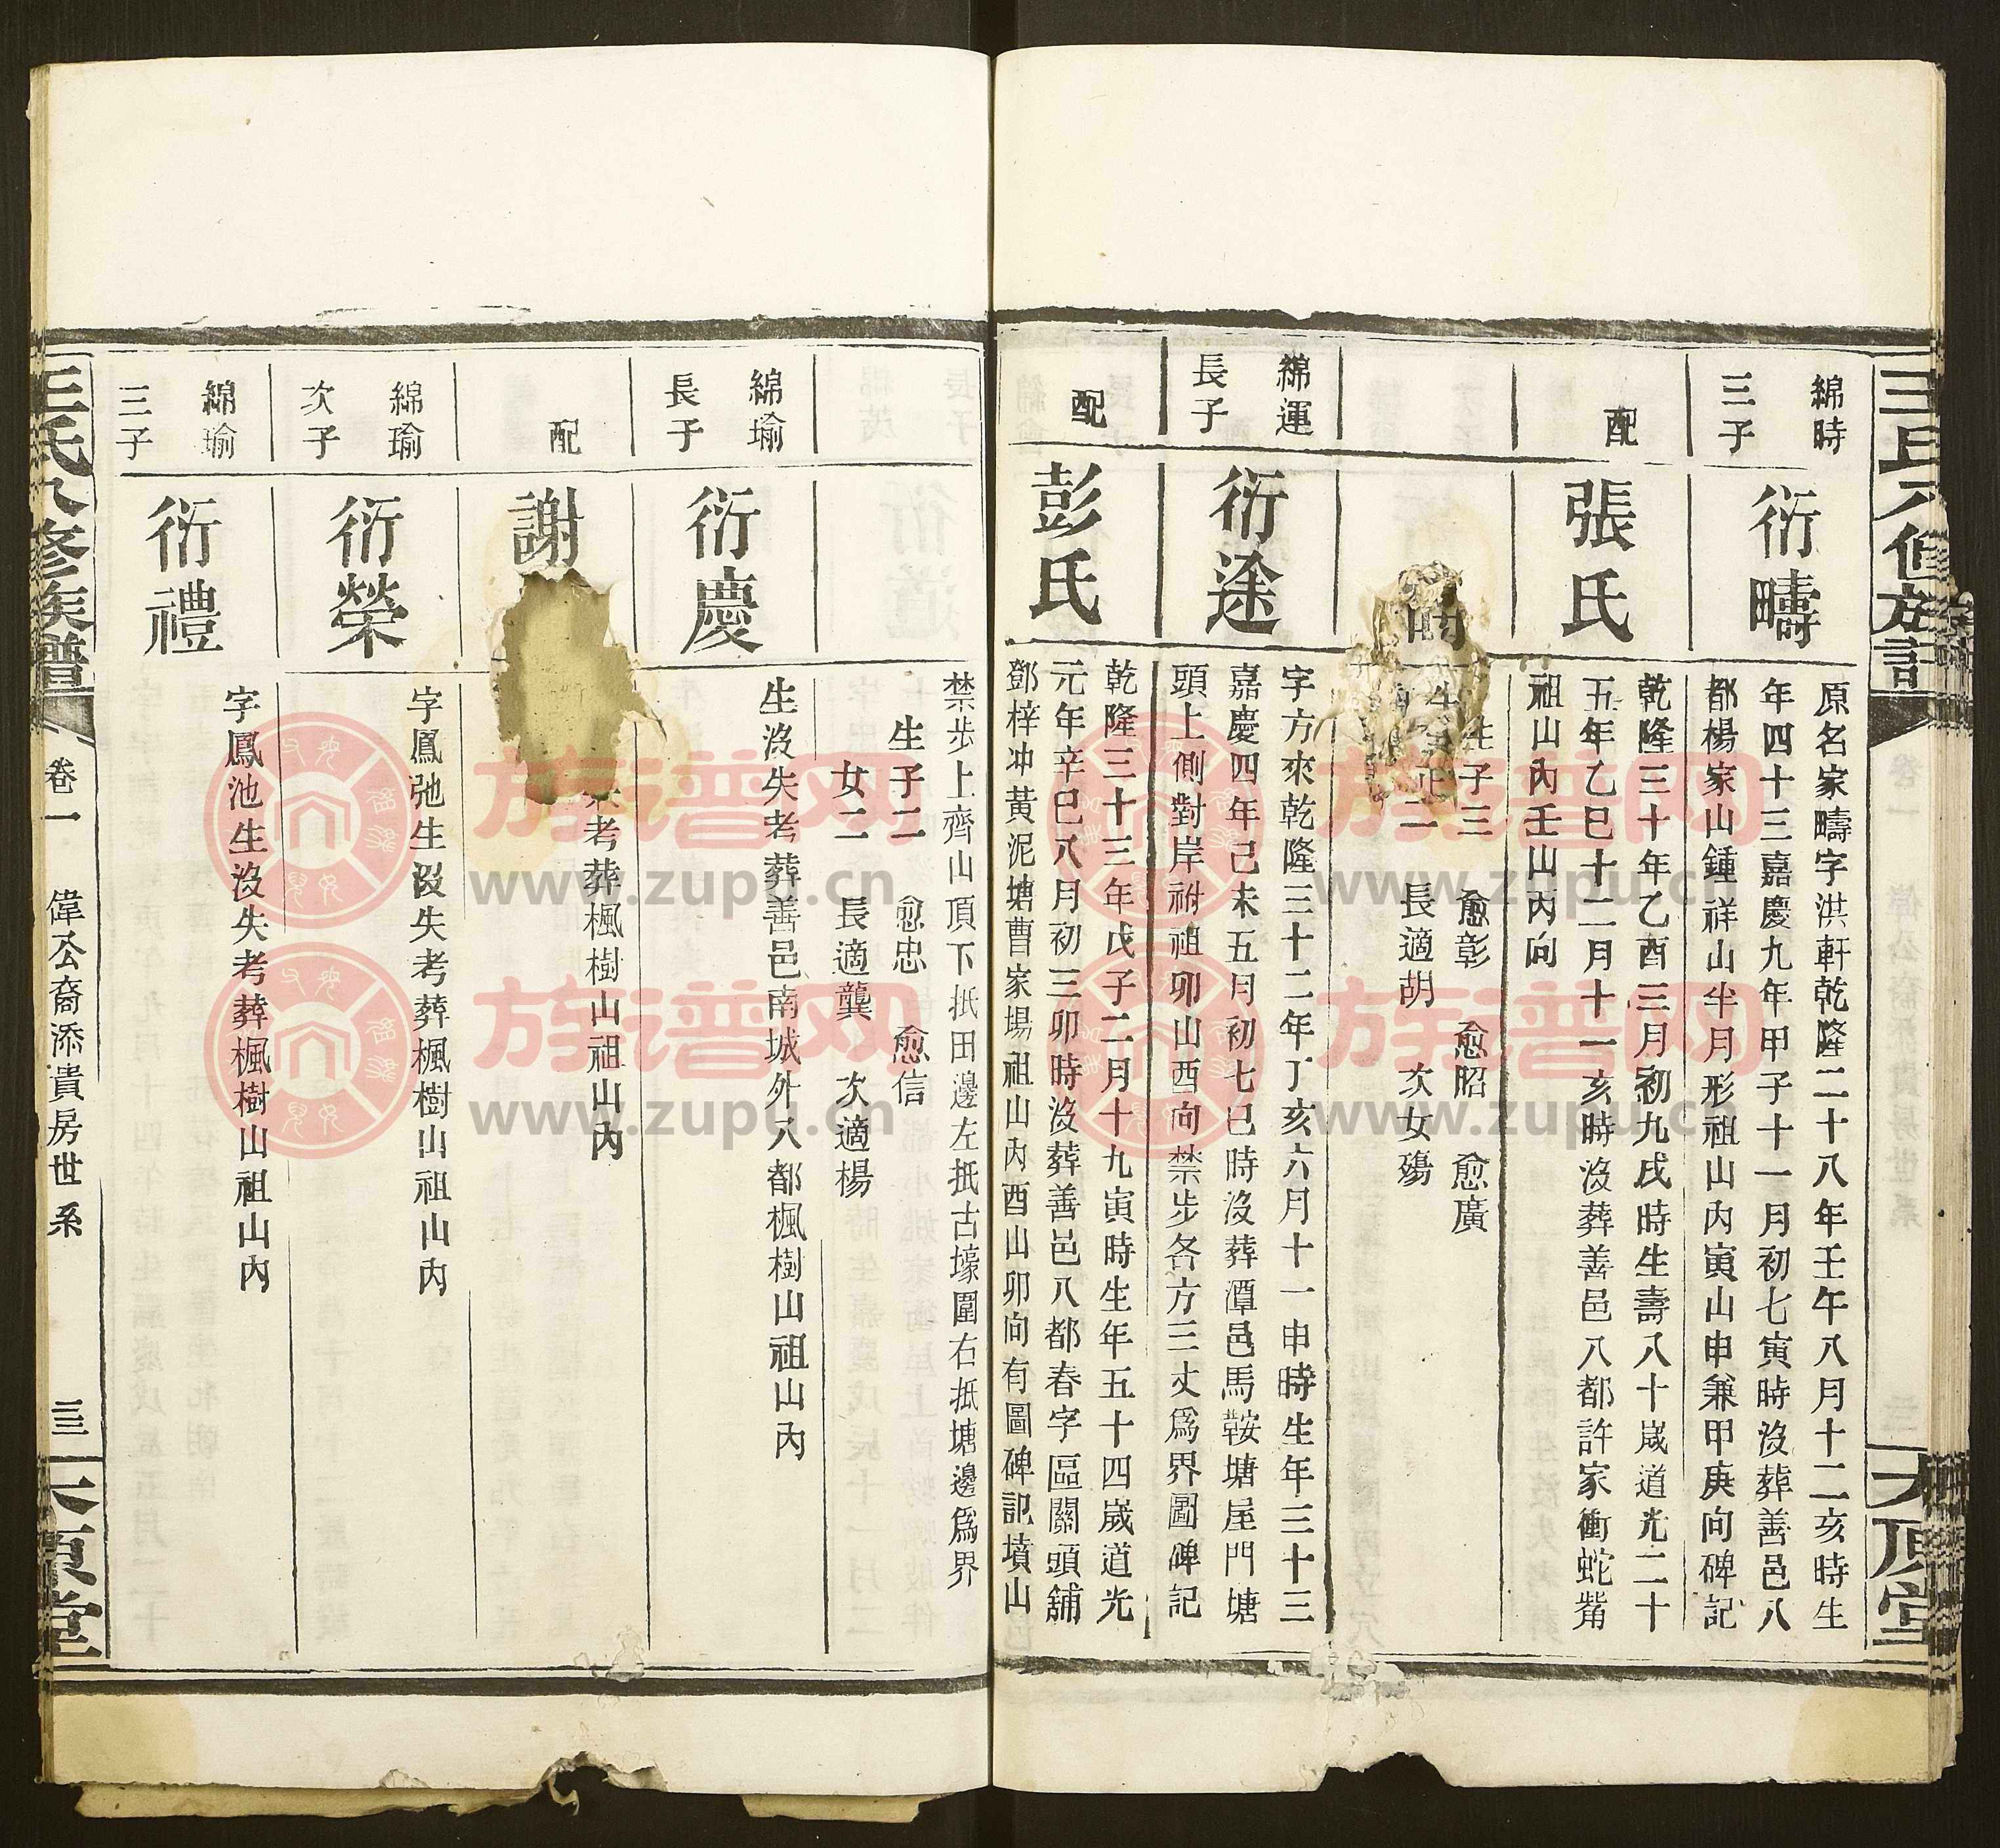 綿時
三子
衍疇
原名家疇字洪軒乾隆二十八年壬午八月十二亥時生
年四十三嘉慶九年甲子十一月初七寅時沒葬善邑八
都楊家山鍾祥山半月形祖山內寅山申兼甲庚向碑記
配
張氏
乾隆三十年乙酉三月初九戌時生壽八十歲道光二十
五年乙巳十二月十一亥時沒葬善邑八都許家衝蛇觜
祖山內壬山丙向
生子三 愈彰 愈昭 愈廣
二 長適胡 次女殤
綿運
長子
衍途
字方來乾隆三十二年丁亥六月十一申時生年三十三
嘉慶四年己未五月初七巳時沒葬潭邑馬鞍塘屋門塘
頭上側對岸祔祖卯山酉向禁步各方三丈爲界圖碑記
配
彭氏
乾隆三十三年戊子二月十九寅時生年五十四歲道光
元年辛巳八月初三卯時沒葬善邑八都春字區關頭舖
鄧梓冲黃泥塘曹家場祖山內酉山卯向有圖碑記墳山
禁步上齊山頂下抵田邊左抵古壕圍右抵塘邊爲界
生子二 愈忠 愈信
女二 長適龔 次適楊
綿瑜
長子
衍慶
生沒失考葬善邑南城外八都楓樹山祖山內
配
謝
考葬楓樹山祖山內
綿瑜
次子
衍榮
字鳳弛生沒失考葬楓樹山祖山內
綿瑜
三子
衍禮
字鳳池生沒失考葬楓樹山祖山內
王氏八修族譜
卷一
偉公裔添貴房世系
三
太原堂
族谱网
www.zupu.cn
族谱网
www.zupu.cn
族谱网
www.zupu.cn
族谱网
www.zupu.cn